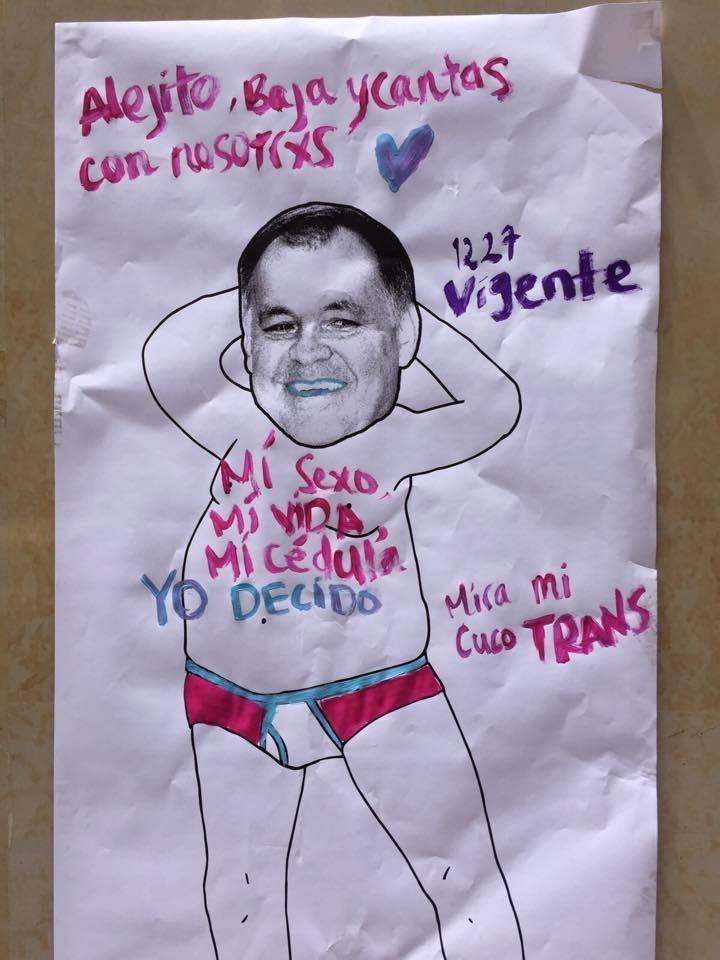 Alejito, Baja y cantas
con nosotrxs
1227
Vigente
Mi sexo,
Mi VIDA,
Mi cédula
YO DECIDO
Mira mi
Cuco TRANS